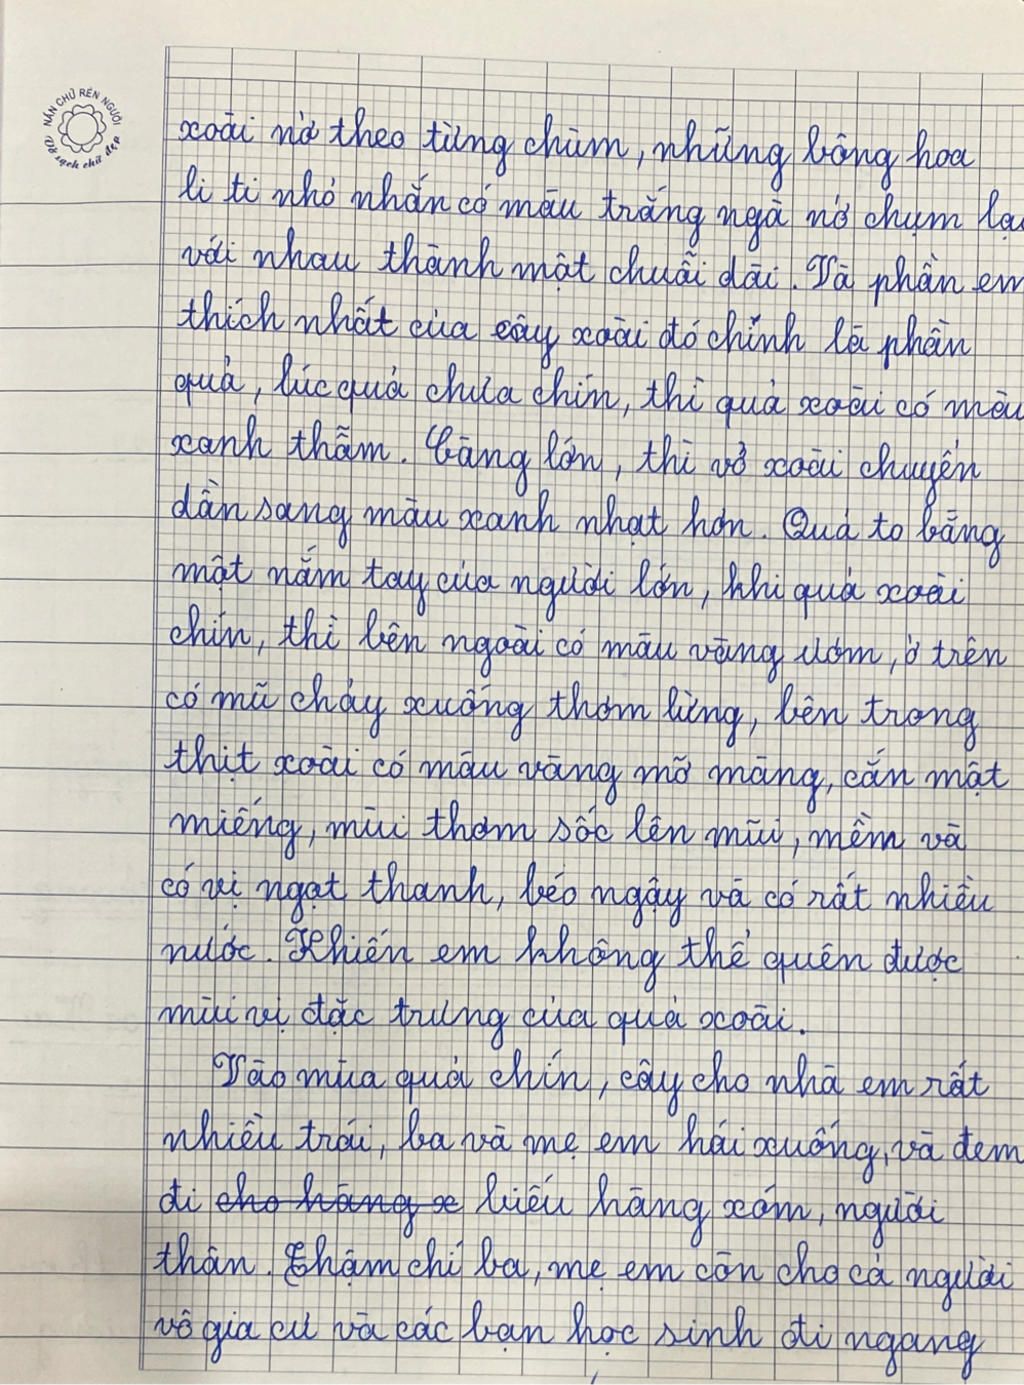 NẮN CHỮ RÈN NGƯỜI
Vở sạch chữ đẹp
xoài nở theo từng chùm, những bông hoa
li ti nhỏ nhắn có màu trắng ngà nở chụm lại
với nhau thành một chuỗi dài. Và phần em
thích nhất của cây xoài đó chính là phần
quả, lúc quả chưa chín, thì quả xoài có màu
xanh thẫm. Càng lớn, thì vỏ xoài chuyển
dần sang màu xanh nhạt hơn. Quả to bằng
một nắm tay của người lớn, khi quả xoài
chín, thì bên ngoài có màu vàng ươm, ở trên
có mũ chảy xuống thơm lừng, bên trong
thịt xoài có màu vàng mỡ màng, cắn một
miếng, mùi thơm sốc lên mũi, mềm và
có vị ngọt thanh, béo ngậy và có rất nhiều
nước. Khiến em không thể quên được
mùi vị đặc trưng của quả xoài.
Vào mùa quả chín, cây cho nhà em rất
nhiều trái, ba và mẹ em hái xuống, và đem
đi cho hàng x biếu hàng xóm, người
thân. Thậm chí ba, mẹ em còn cho cả người
vô gia cư và các bạn học sinh đi ngang